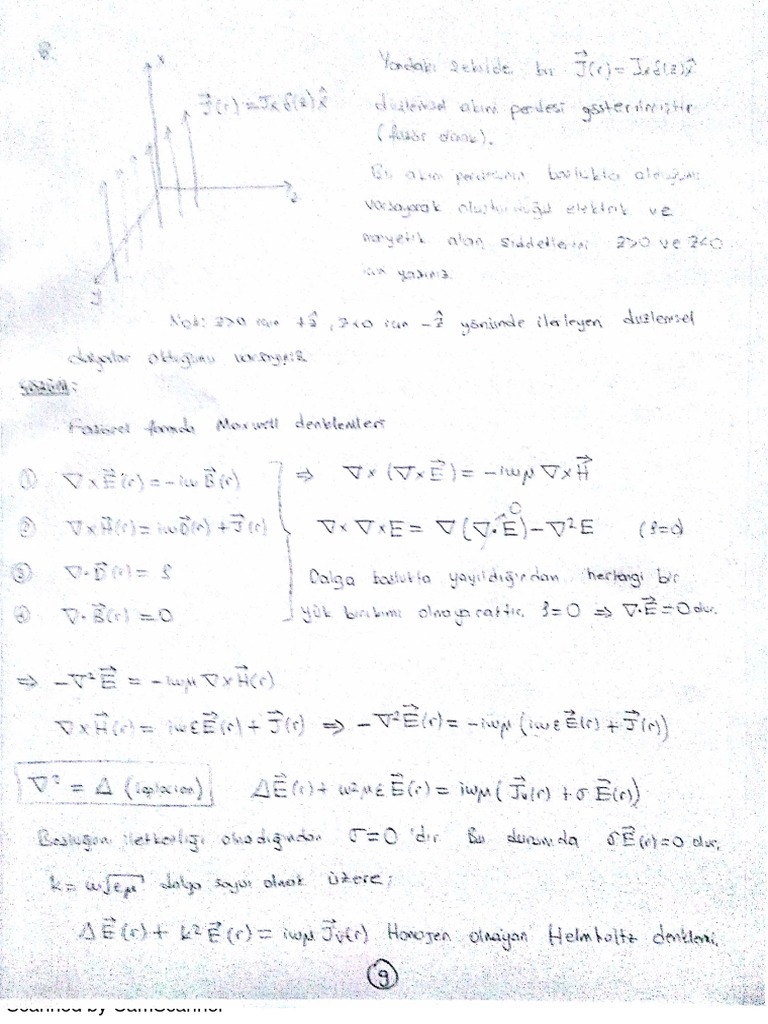 8.
x
J⃗(r) = Jxδ(z)x̂
z
y
Yandaki şekilde bir J⃗(r) = Jxδ(z)x̂
düzlemsel akım perdesi gösterilmiştir
(fazör olarak).
Bu akım perdesinin boşlukta olduğunu
varsayarak oluşturduğu elektrik ve
manyetik alan şiddetlerini z>0 ve z<0
için yazınız.
Not: z>0 için +ẑ, z<0 için -ẑ yönünde ilerleyen düzlemsel
dalgalar olduğunu varsayınız.
ÇÖZÜM:
Fazörel formda Maxwell denklemleri
① ∇×E⃗(r) = -iωB⃗(r) ⇒ ∇×(∇×E⃗) = -iωμ ∇×H⃗
② ∇×H⃗(r) = iωD⃗(r) + J⃗(r) ∇×∇×E = ∇(∇·E⃗) - ∇²E (ρ=0) 0
③ ∇·D⃗(r) = ρ Dalga boşlukta yayıldığından herhangi bir
④ ∇·B⃗(r) = 0 yük birikimi olmayacaktır. ρ=0 ⇒ ∇·E⃗=0 olur.
⇒ -∇²E⃗ = -iωμ ∇×H⃗(r)
∇×H⃗(r) = iωεE⃗(r) + J⃗(r) ⇒ -∇²E⃗(r) = -iωμ(iωεE⃗(r) + J⃗(r))
∇² = Δ (laplasian) ΔE⃗(r) + ω²με E⃗(r) = iωμ(J⃗v(r) + σE⃗(r))
Boşluğun iletkenliği olmadığından σ=0 'dır. Bu durumda σE⃗(r)=0 olur.
k = ω√εμ dalga sayısı olmak üzere;
ΔE⃗(r) + k²E⃗(r) = iωμ J⃗v(r) Homojen olmayan Helmholtz denklemi.
9
Scanned by CamScanner